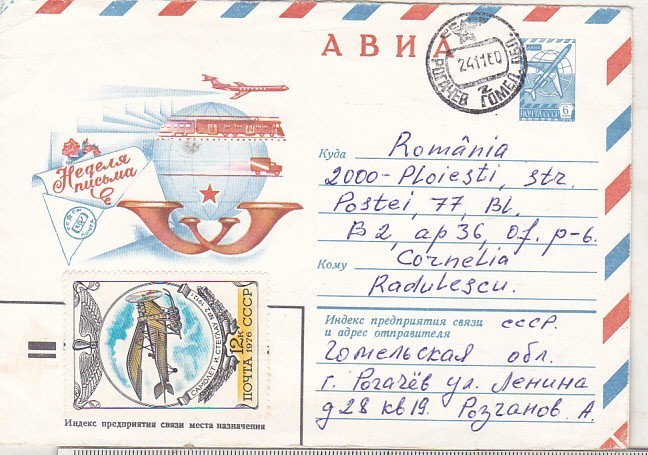 АВИА
РОГАЧЕВ ГОМЕЛ. ОБЛ.
241180
2
ПОЧТА СССР
6
Неделя
письма
Куда România
2000-Ploiești, str.
Postei, 77, Bl.
B2, ap 36, Of. p-6.
Кому Cornelia
Radulescu.
Индекс предприятия связи
и адрес отправителя
СССР.
Гомельская обл.
г. Рогачёв ул. Ленина
д 28 кв 19. Розганов. А.
САМОЛЕТ И. СТЕГЛАУ №2 1912 г.
12к
ПОЧТА 1976 СССР
Индекс предприятия связи места назначения